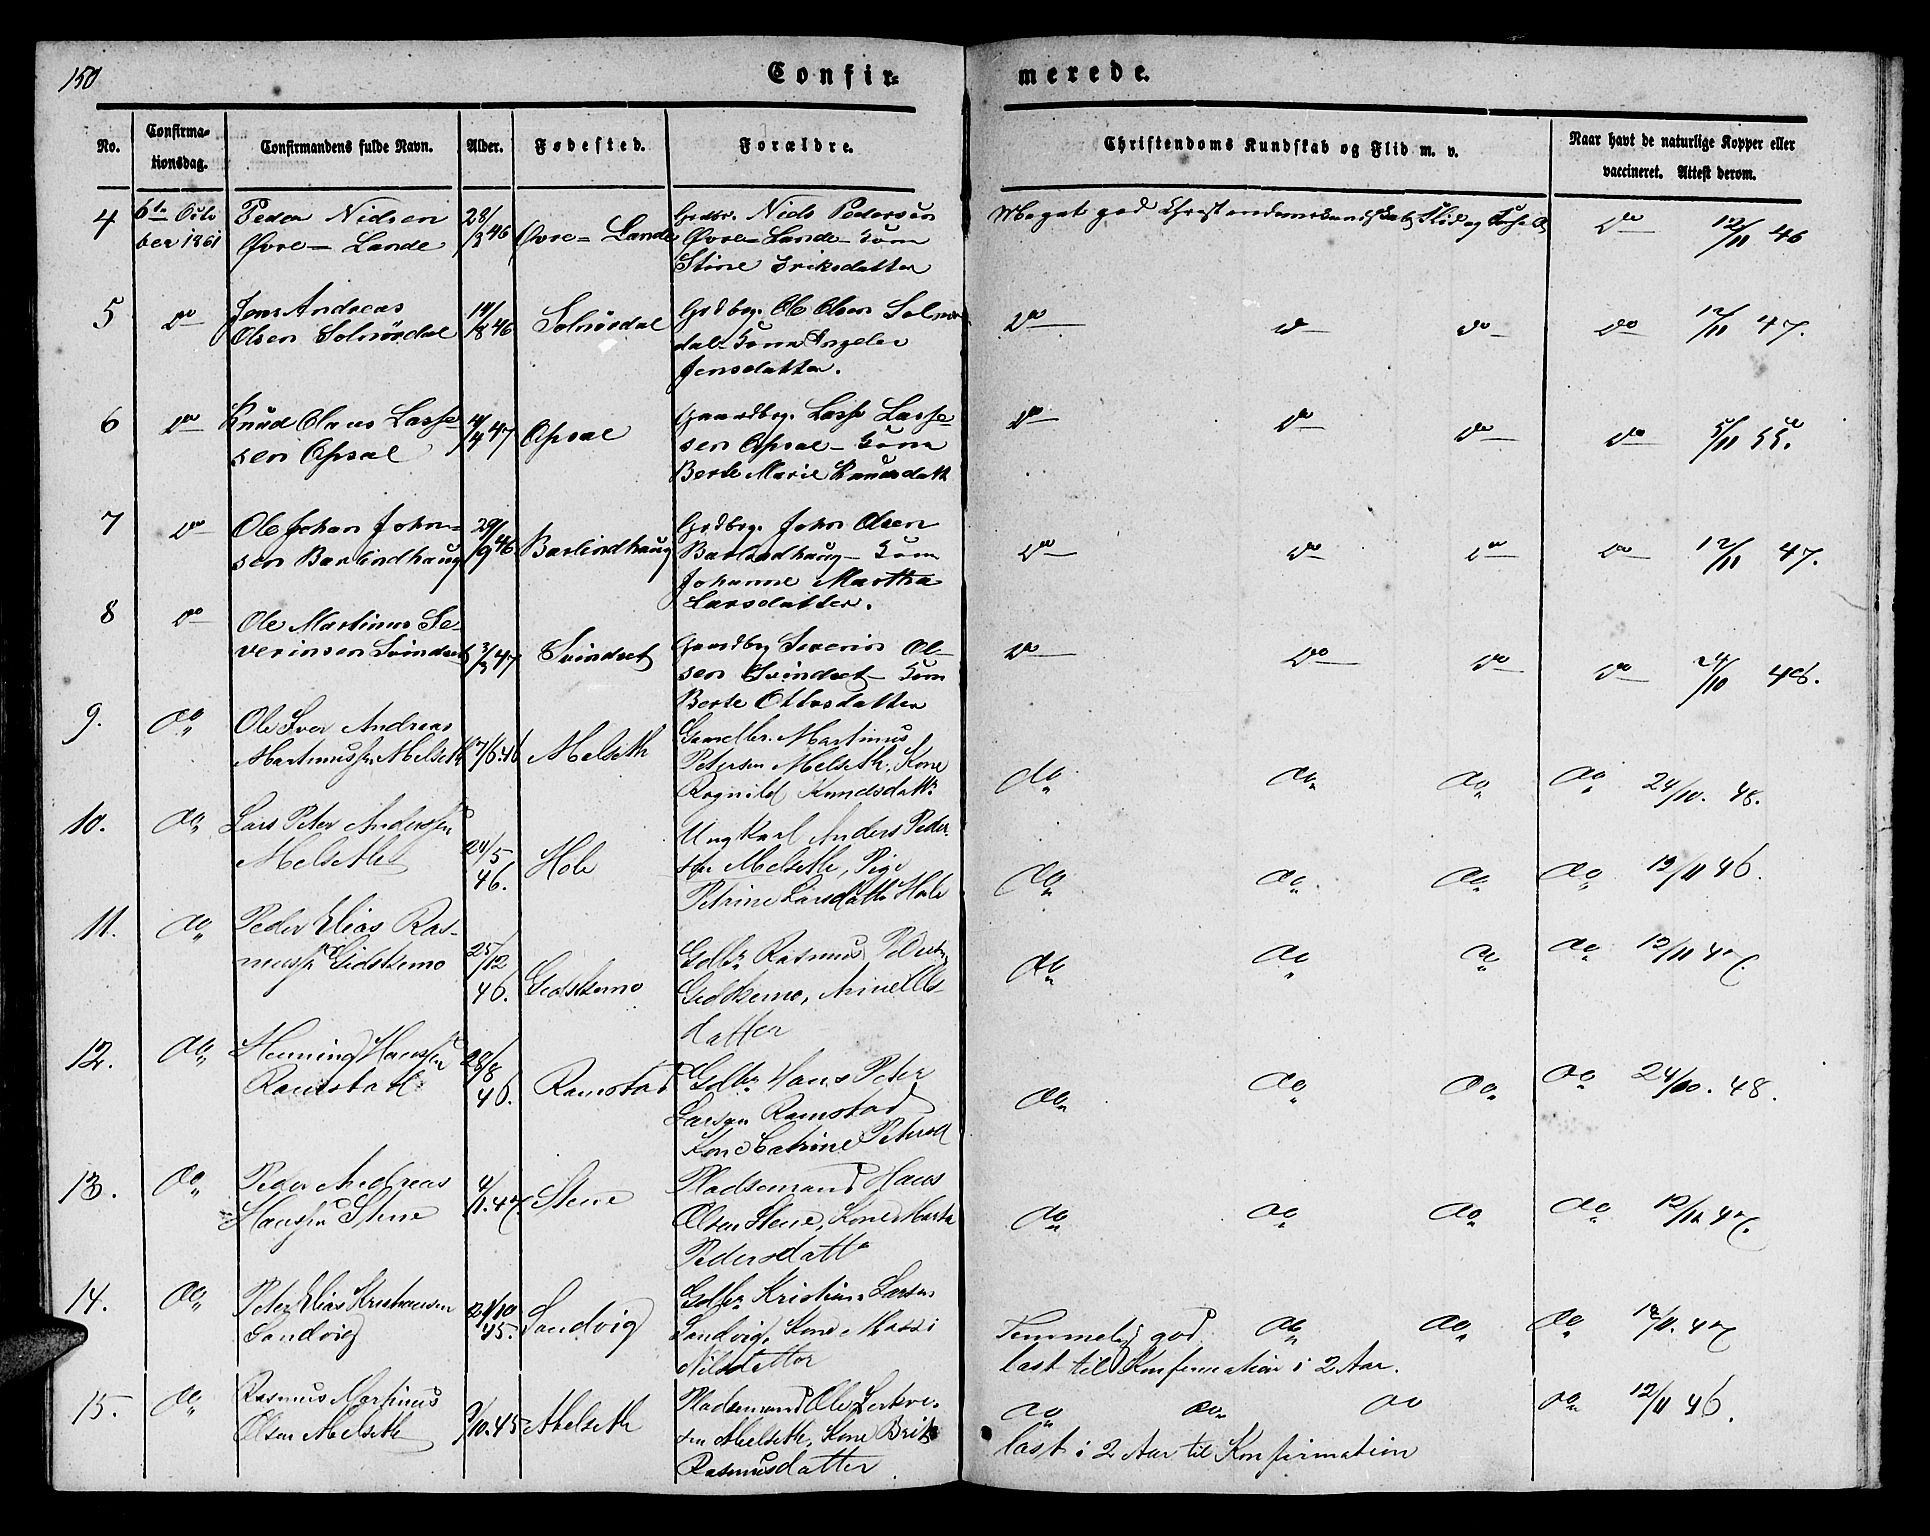 150
Confir-
merede.
No.
Confirma-
tionsdag.
Confirmandens fulde Navn.
Alder.
Fødested.
Forældre.
Christendoms Kundskab og Flid m. v.
Naar havt de naturlige Kopper eller
vaccineret. Attest derom.
4 6te Octo
ber 1861
Peder Nielsen
Øvre= Lande
28/3 46
Øvre= Lande
Grdbr. Niels Pedersen
Øvre= Lande
Stine Eriksdatter
Meget god Christendomskundskab, Flid og
Do 12/11 46
5 Do
Jens Andreas
Olsen Solnørdal
46
Solnørdal
Grdbrg. Ole Olsen Solnør
dal Ingeler
Jensdatter.
Do Do Do Do 12/11 47.
6 Do
Knud Olaus Lasse
sen Opsal
4/4 47
Opsal
Gaardbrg. Lasse Lasse-
sen Opsal
Berte Marie Knudsdatt
Do Do Do Do 5/11 55.
7 Do
Ole Johan John=
sen Barlindhaug
29/9 46
Barlindhaug
Grdbrg. John Olsen
Barlindhaug
Johanne Martha
Larsdatter.
Do Do Do Do 12/11 47.
8 Do
Ole Martinus Se-
verinsen Svindset
3/3 47
Svindset
Gaardbrg Severin Ol-
sen Svindset
Berte Ottosdatter
Do Do Do Do 24/10 48.
9. Do
Ole Iver Andreas
Martinussen Melseth
17/6. 46
Melseth
Gaardbr. Martinus
Petersen Melseth, Kone
Ragnild Knudsdatt.
do do do do 24/10. 48.
10. Do
Lars Peter Anderssen
Melseth
24/5
46.
Hole
Ungkarl Anders Peder-
sen Melseth, Pige
Petrine Larsdatter Hole
do do do do 12/11 46.
11. Do
Peder Elias Ras-
mussen Gidskemo
25/12
46.
Gidskemo
Gdbr Rasmus Peders
Gidskemo,
datter
do do do do 12/11 47.
12. Do
Henning Hanssen
Ramstad
28/8
46.
Ramstad
Gdbr Hans Peter
Larsen Ramstad
Kone Catrine Petersd
do do do do 24/10. 48.
13. Do
Peder Andreas
Hanssen Stene
4/1. 47.
Stene
Pladsemand Hans
Olsen Stene, Kone Marta
Pedersdatter
do do do do 47.
14. Do
Peter Elias Kristiansen
Sandvig
21/10
45.
Sandvig
Gdbr Kristian Larsen
Sandvig, Kone
Nilsdatter
Temmelig god do do do 47
læst til Konfirmation i 2 Aar.
15. Do
Rasmus Martinus
Olsen Melseth
9/10. 45
Melseth
Pladsemand Ole
sen Melseth, Kone Brit
Rasmusdatter
do do do do 12/11 46.
læst i 2 Aar til Konfirmation